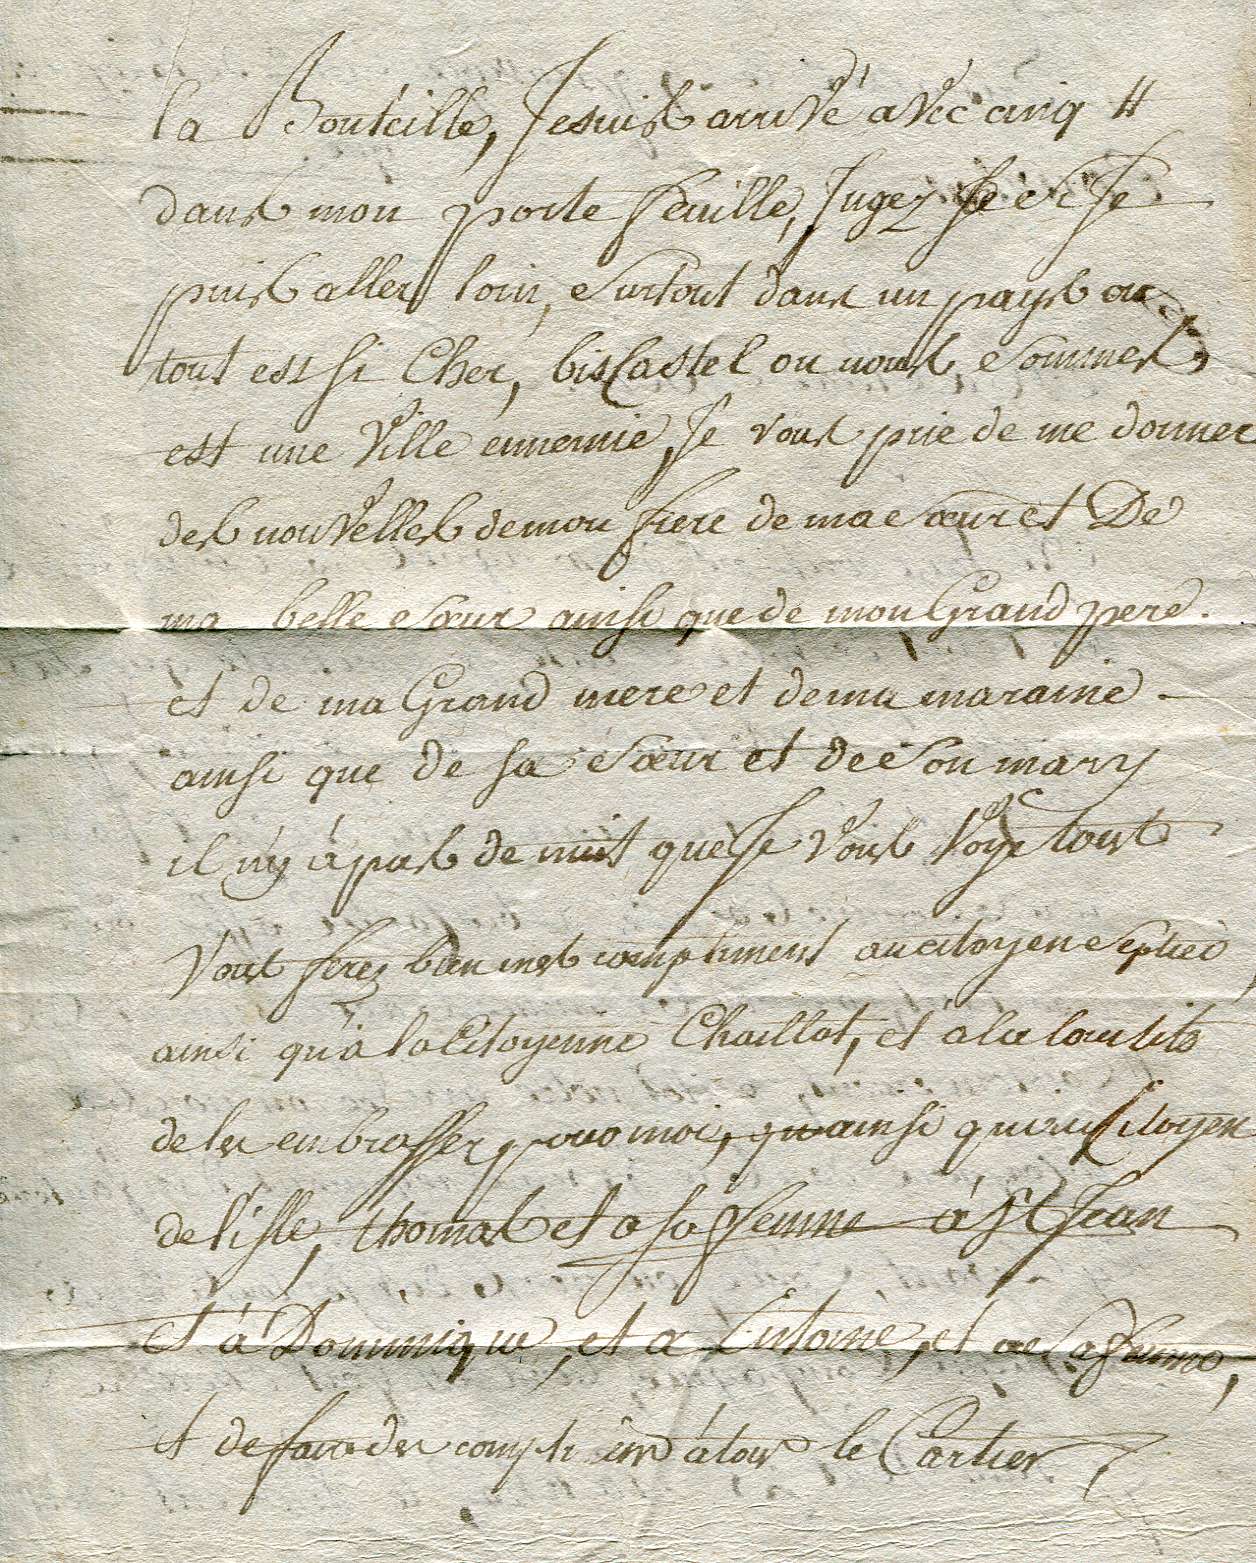 la Bouteille, Jesuis arrivé avec cinq ⧺
dans mon porte feuille, Jugez se si Je
puis aller loin, surtout dans un pays ou
tout est si Cher, biscastel ou nous sommes
est une Ville ennemie, Je vous prie de me donner
des nouvelles demon frere de ma sœur et De
ma belle sœur ainsi que de mon Grand pere.
et de ma Grand mere et dema maraine
ainsi que de sa sœur et de son mary
il n'y à pas de nuit que Je vous Voye tous
Vous ferez bien mes compliment aucitoyen
ainsi qu'a la Citoyenne Chaillot, et a la
de les embrasser pour moi, ainsi qu'au Citoyen
de l'isle, thomas et a sa femme à St Jean
et à Dominique, et a Entoine, et a sa femme,
et de faire des compli à tous le Cartier